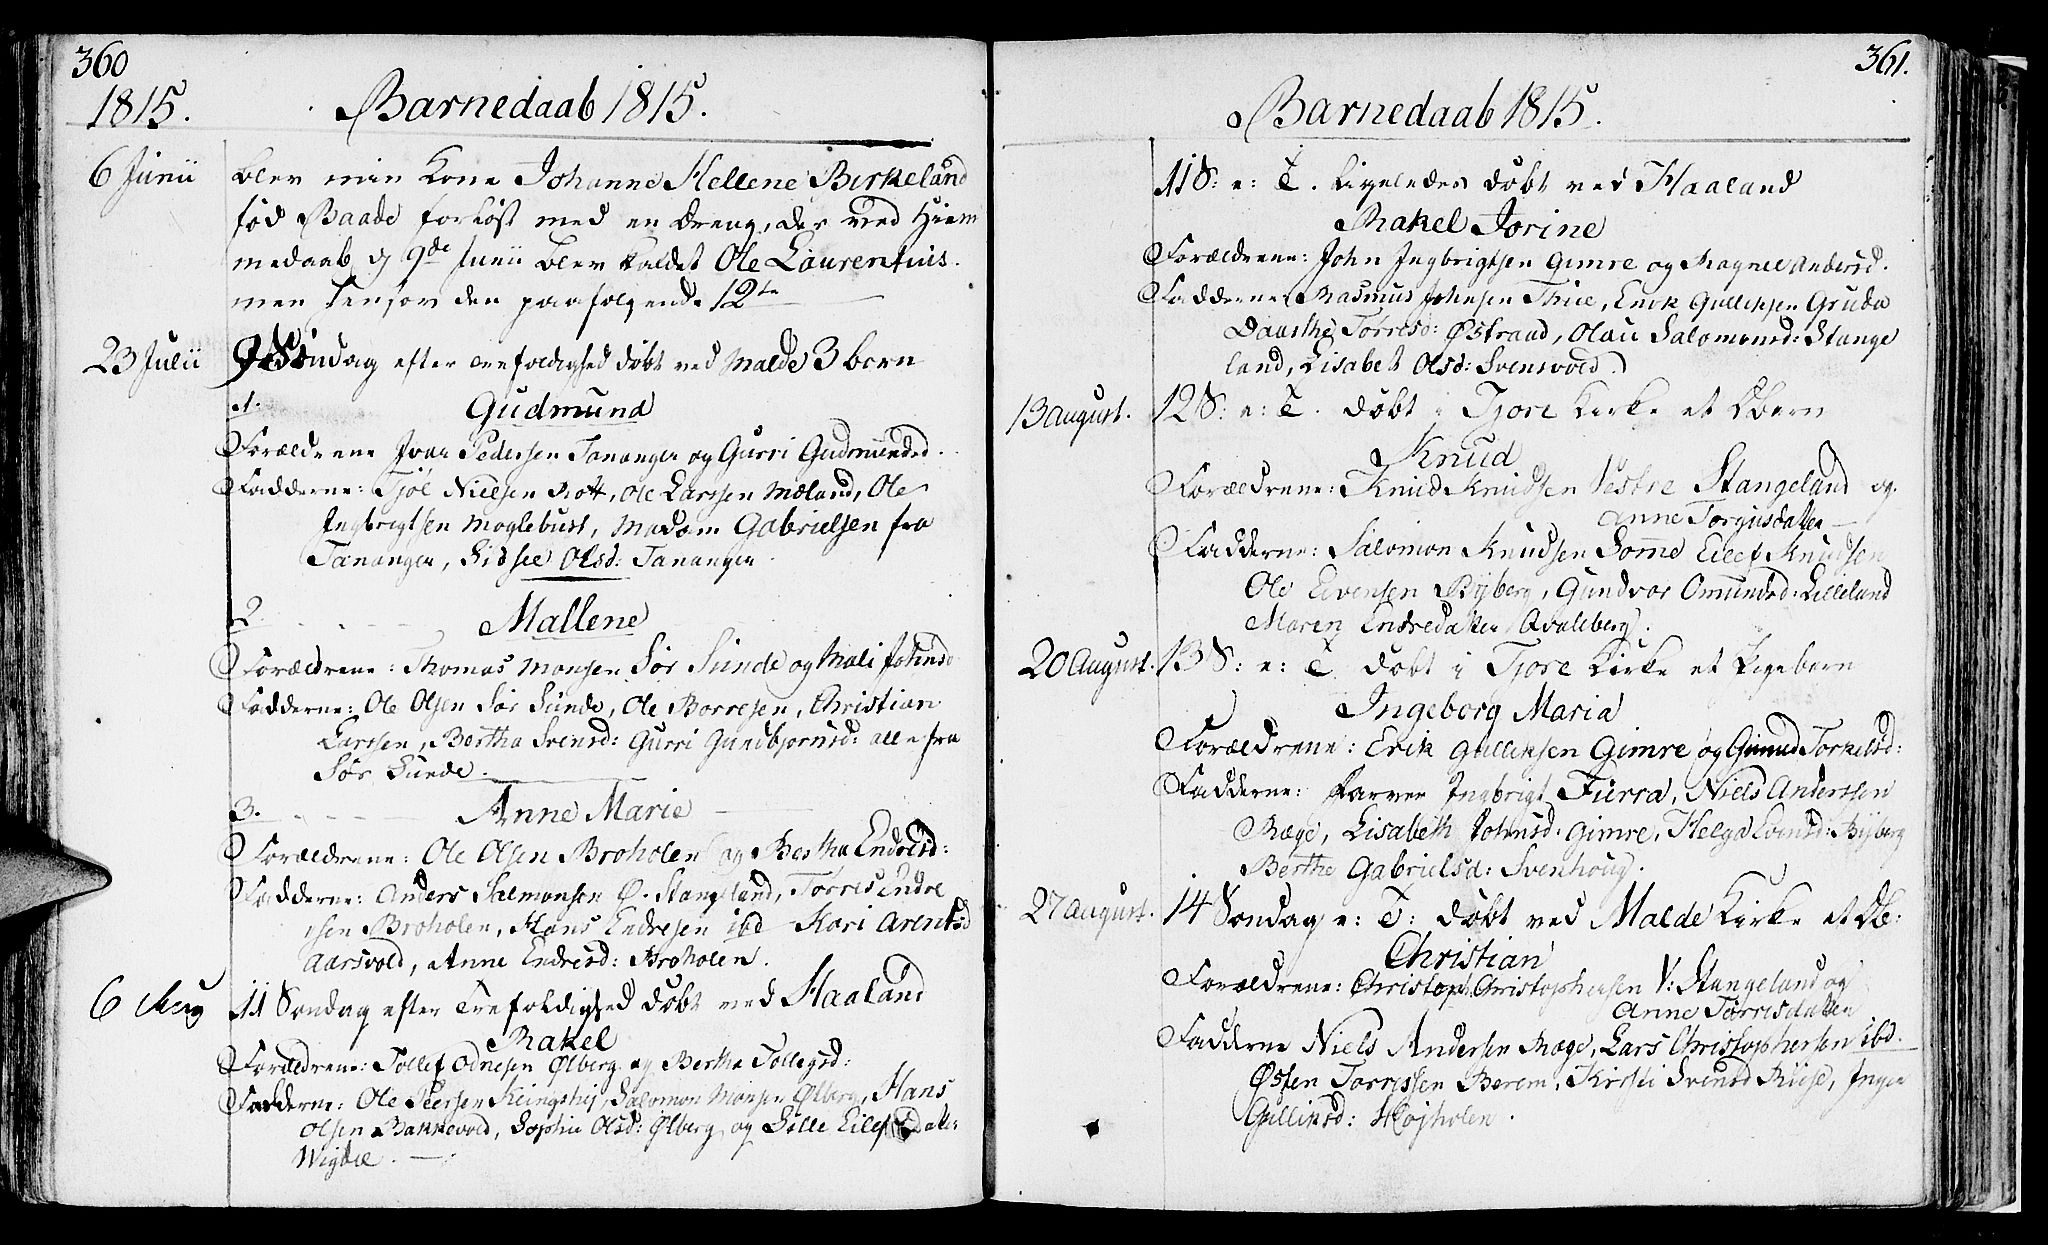 360
1815. Barnedaab 1815.
6 Junii blev min Kone Johanne Hellene Birkeland
fød Baade forløst med en Dreng, der ved Hiem
medaab d 9de Junii blev kaldet Ole Laurentius.
men den paafølgende 12te
23 Julii 9 Søndag efter Trefoldighed døbt ved Malde 3 børn
1. Gudmund
Forældrene Ivar Pedersen Tananger og Gurri Gudmundsd.
Fadderne: Tjøl Nielsen Rott, Ole Larssen Mæland, Ole
Ingbrigtsen Moglebust, Madam Gabrielsen fra
Tananger, Sidsel Olsd: Tananger.
2. Mallene
Forældrene: Thomas Monsen Sør Sunde og Mali Johnsd
Fadderne: Ole Olsen Sør Sunde, Ole Borresen, Christian
Larssen, Bertha Svensd: Gurri Gundbjørnsd: alle fra
Sør Sunde.
3. Anne Marie
Forældrene: Ole Olsen Broholen og Bertha Endresd:
Fadderne: Anders Salmonsen Ø. Stangeland, Torres Endre
sen Broholen, Hans Endresen ibd Kari Arentsd
Aarsvold, Anne Endresd: Broholen.
6 Aug 11 Søndag efter Trefoldighed døbt ved Haaland
Rakel
Forældrene: Tollef Odnesen Ølberg og Bertha Tollegsd:
Fadderne: Ole Peersen Salomon Monsen Ølberg, Hans
Olsen Bakkevold, Sophie Olsd: Ølberg og Sille Eilefsdatter
Wigdel.
361.
Barnedaab 1815.
11 S: e: T. Ligeledes døbt ved Haaland
Rakel Jorine
Forældrene: John Ingbrigtsen Gimre og Magnel Andersd.
Fadderne Rasmus Johnsen Thiee, Erik Gulliksen Gruda
Daarthe Torresd: Østraad, Olau Salomonsd: Stange
land, Lisabet Olsd: Svensvold.
13 august. 12 S: e: T. døbt i Tjore Kirke et Dbarn
Knud
Forældrene: Knud Knudsen Vestre Stangeland og
Anne Torgusdatter
Fadderne: Salomon Knudsen Somme Eilef Knudsen
Ole Eivensen Byberg, Gundvor Omundsd: Lilleland
Maren Endredatter Qvaleberg.
20 August. 13 S: e: T. døbt i Tjore Kirke et Pigebarn
Ingeborg Maria
Forældrene: Erik Gulliksen Gimre og Gunild Torkelsd:
Fadderne: Farver Ingbrigt Fierra, Niels Anderssen
Ræge, Lisabeth Johnsd: Gimre, Helga Evensd: Byberg
Berthe Gabrielsd: Svenhoug.
27 august. 14 Søndag e: T: døbt ved Malde Kirke et Db:
Christian
Forældrene: Christoph Christophersen V: Stangeland og
Anne Torrisdatter
Fadderne Niels Andersen Ræge, Lars Christophersen ibd.
Østen Torressen Berem, Kirsti Svensd Riise, Inger
Gulliksd: Højholen.